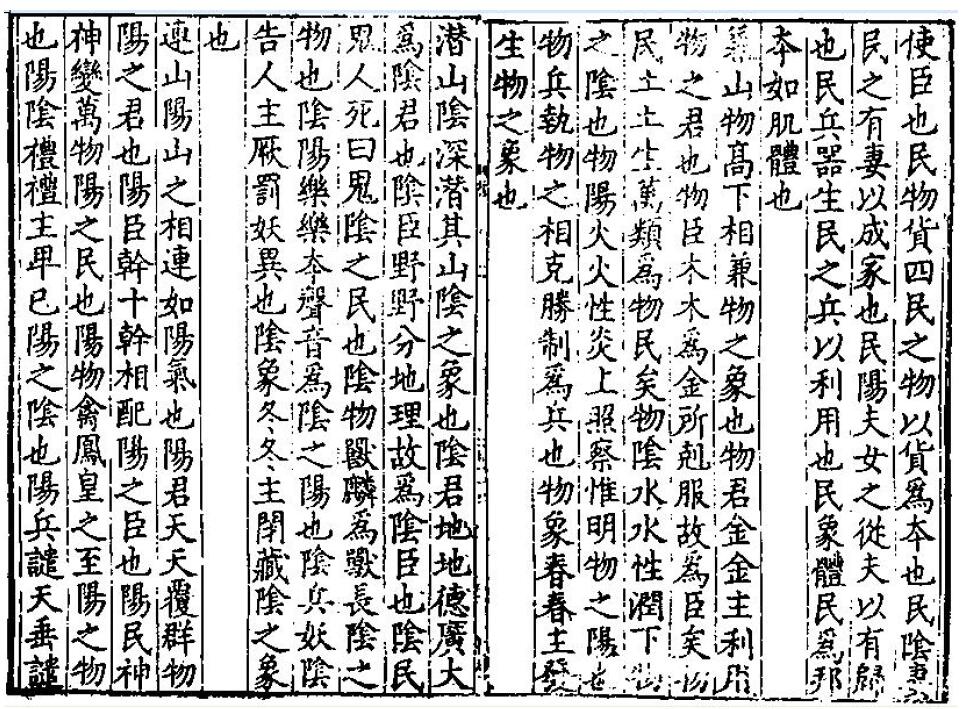 使臣也民物貨四民之物以貨爲夲也民陰妻
民之有妻以成家也民陽夫女之從夫以有歸
也民兵噐生民之兵以利用也民象體民爲邦
夲如肌體也
兼山物髙下相兼物之象也物君金金主利用
物之君也物臣木木爲金所剋服故爲臣矣物
民土土生萬類爲物民矣物陰水水性潤下物
之陰也物陽火火性炎上照察惟明物之陽也
物兵執物之相克勝制爲兵也物象春春主發
生物之象也
潛山陰深潛其山陰之象也陰君地地德廣大
爲陰君也陰臣野野分地理故爲陰臣也陰民
鬼人死曰鬼陰之民也陰物獸麟爲獸長陰之
物也陰陽樂樂夲聲音爲陰之陽也陰兵妖陰
告人主厥罰妖異也陰象冬冬主閉藏陰之象
也
連山陽山之相連如陽氣也陽君天天覆群物
陽之君也陽臣幹十幹相配陽之臣也陽民神
神變萬物陽之民也陽物禽鳳皇之至陽之物
也陽陰禮禮主卑已陽之陰也陽兵譴天垂譴